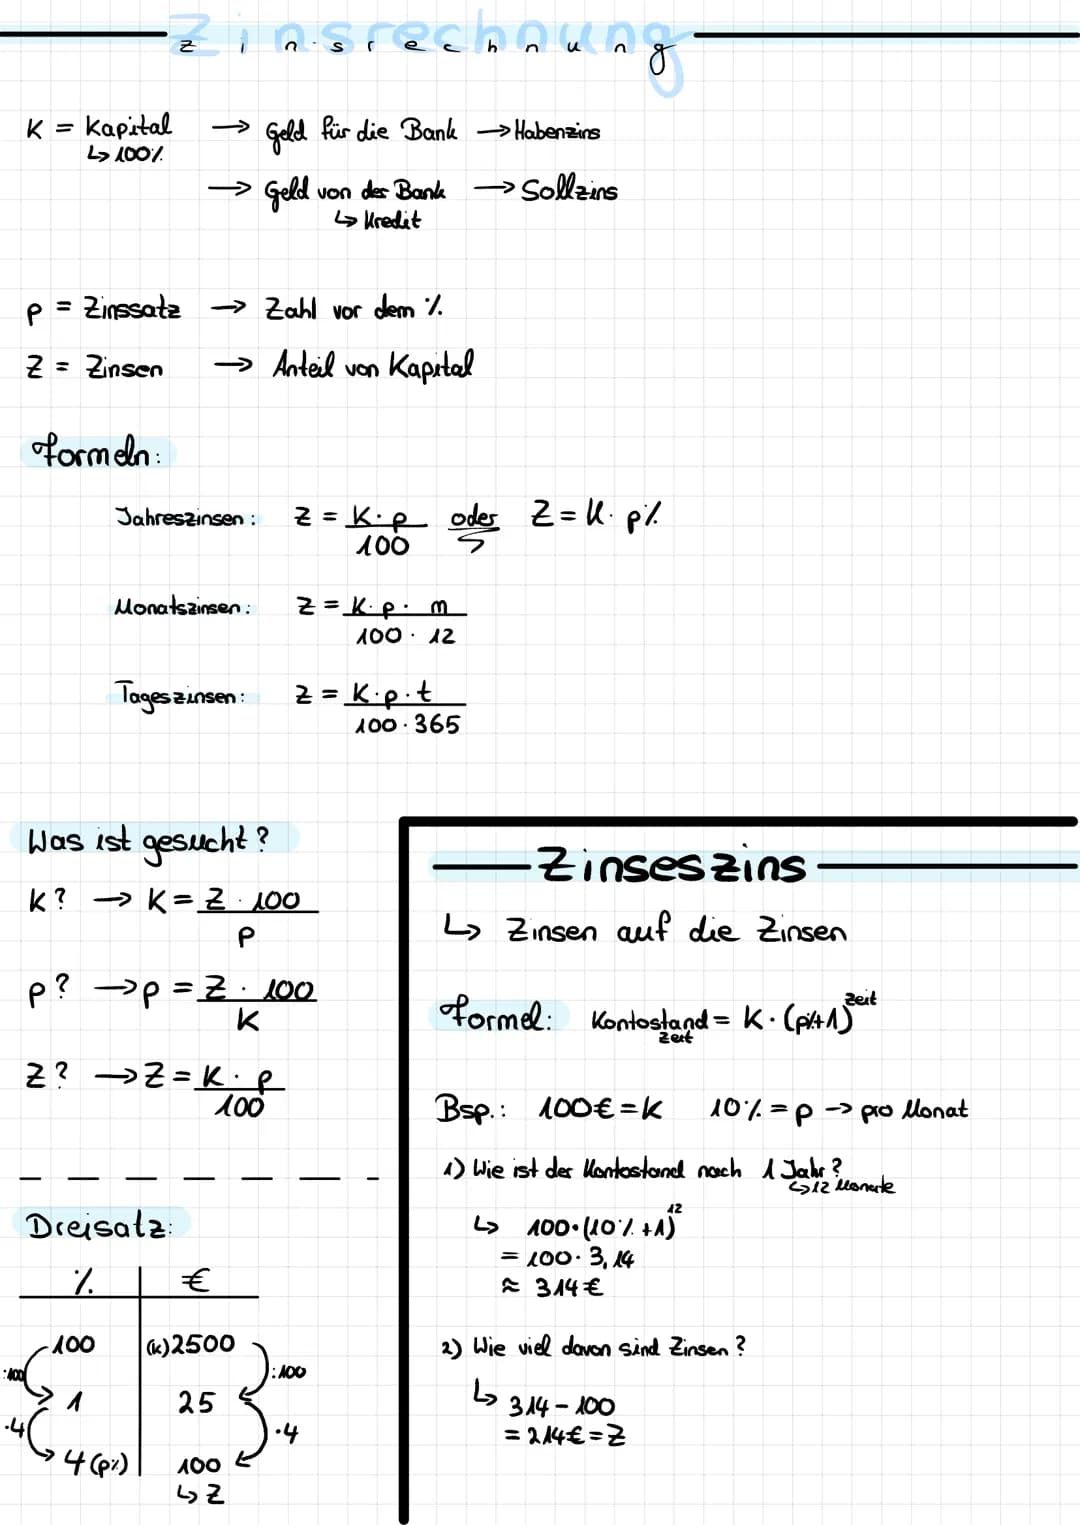 Zinsrechnung
zinsrechnung
K = Kapital → Geld für die Bank → Habenzins
↳ 100%
→ Geld von der Bank → Sollzins
↳ Kredit
p = Zinssatz → Zahl vor dem %
Z = Zinsen → Anteil von Kapital
Formeln:
Jahreszinsen: Z = K · p / 100 oder Z = K · p%
Monatszinsen: Z = K · p · m / 100 · 12
Tageszinsen: Z = K · p · t / 100 · 365
Was ist gesucht?
K? → K = Z · 100 / p
p? → p = Z · 100 / K
Z? → Z = K · p / 100
Dreisatz:
% | €
100 | (K) 2500
:100 :100
1 | 25
·4 ·4
4 (p%) | 100
↳ Z
Zinseszins
↳ Zinsen auf die Zinsen
Formel: Kontostand_Zeit = K · (p%+1)^Zeit
Bsp.: 100€ = K 10% = p → pro Monat
1) Wie ist der Kontostand nach 1 Jahr?
↳ 12 Monate
↳ 100 · (10% + 1)^12
= 100 · 3,14
≈ 314 €
2) Wie viel davon sind Zinsen?
↳ 314 - 100
= 214€ = Z